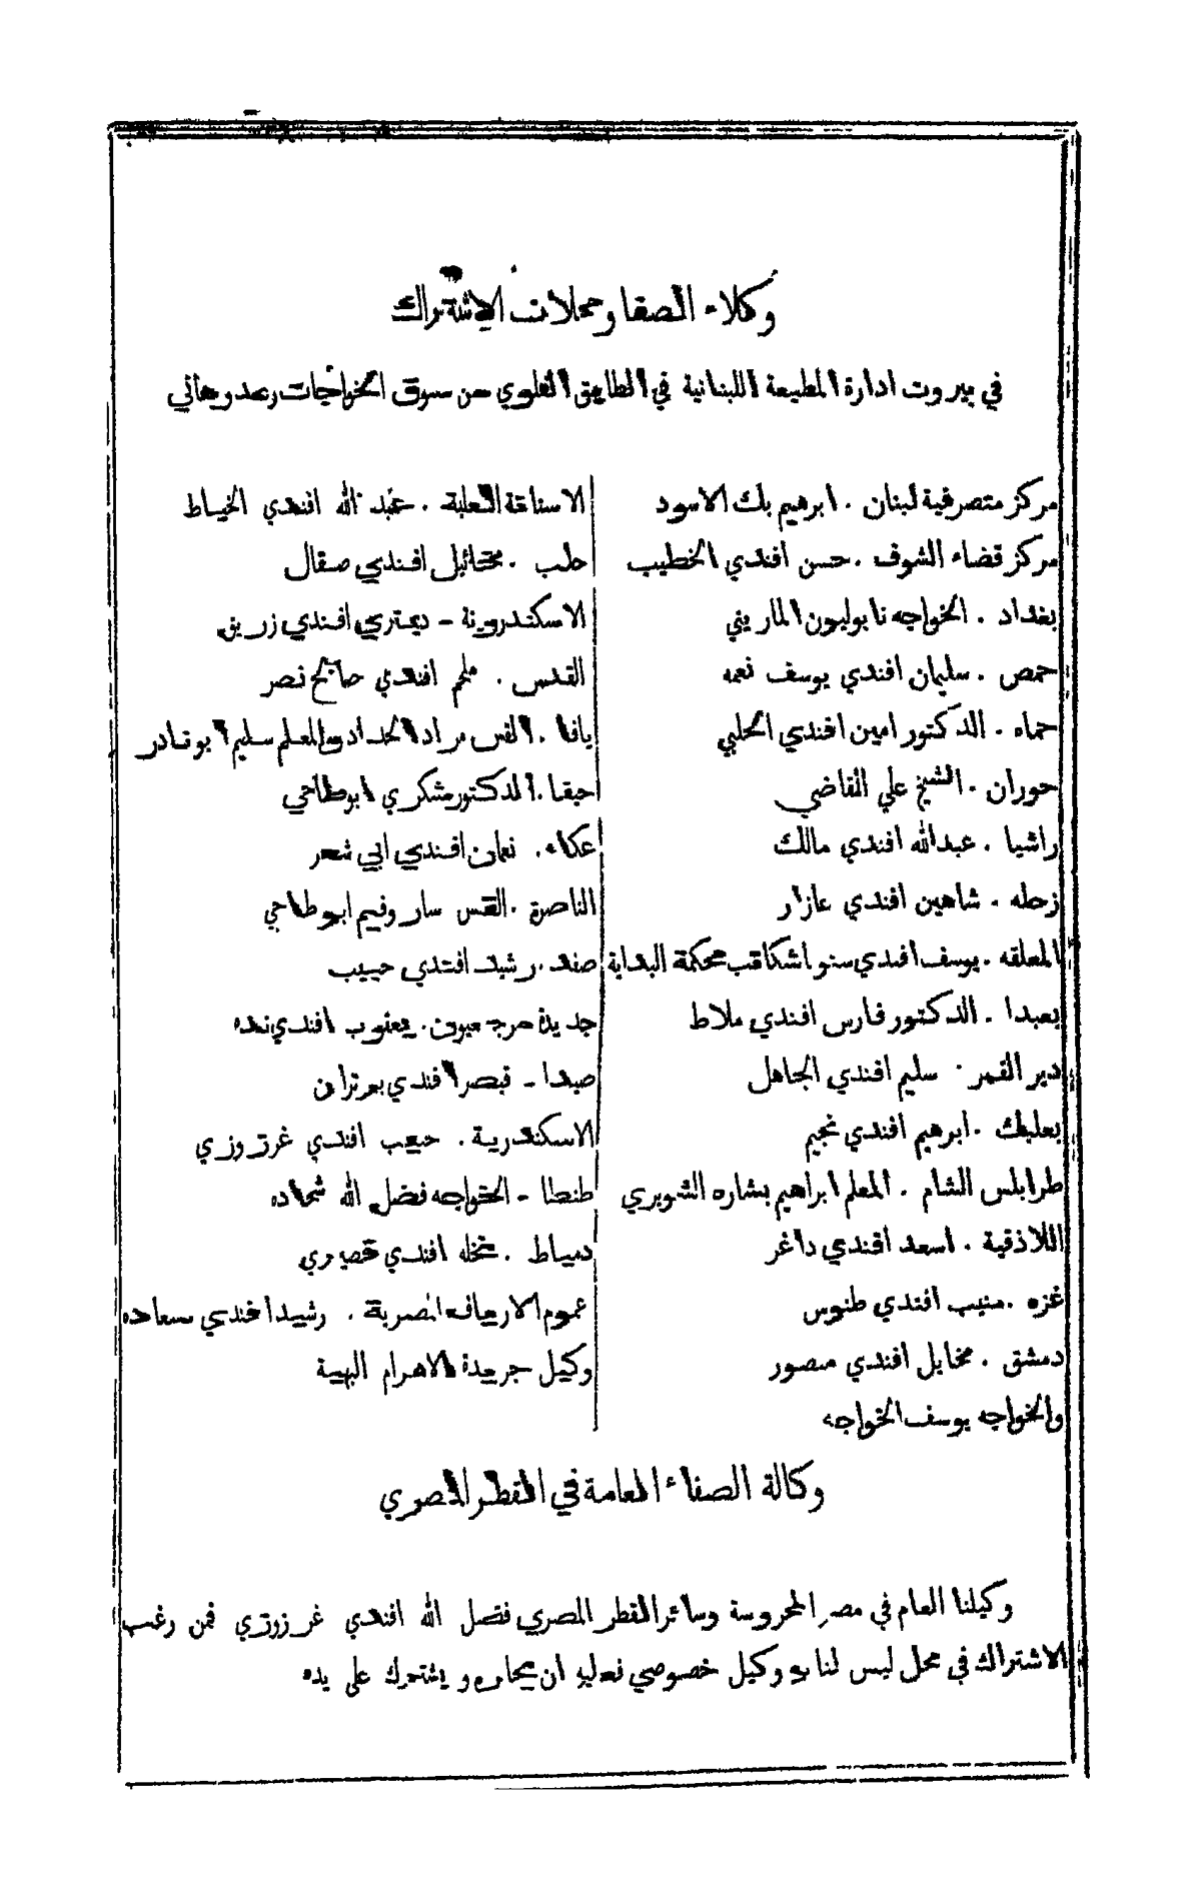 وكلاء الصفا ومحلات الاشتراك
في بيروت ادارة المطبعة اللبنانية في الطابق العلوي من سوق الخواجات رعد وهاني
مركز متصرفية لبنان . ابرهيم بك الاسود
مركز قضاء الشوف . حسن افندي الخطيب
بغداد . الخواجه نابوليون الماريني
حمص . سليمان افندي يوسف نعمه
حماه . الدكتور امين افندي الحلبي
حوران . الشيخ علي القاضي
راشيا . عبدالله افندي مالك
زحله . شاهين افندي عازار
المعلقه . يوسف افندي كاتب محكمة البداية
بعبدا . الدكتور فارس افندي ملاط
دير القمر . سليم افندي الجاهل
بعلبك . ابرهيم افندي نجيم
طرابلس الشام . المعلم ابراهيم بشاره الشويري
اللاذقية . اسعد افندي داغر
غزه . منيب افندي طنوس
دمشق . مخايل افندي منصور
والخواجه يوسف الخواجه
الاستانة العلية . عبد الله افندي الخياط
حلب . مخائيل افندي صقال
الاسكندرونة - ديمتري افندي زريق
القدس . ملحم افندي صالح نصر
يافا . القس مراد الحداد والمعلم سليم ابو نادر
حيفا . الدكتور شكري ابوطاجي
عكاء . نعمان افندي ابي شعر
الناصرة . القس ساروفيم ابوطاجي
صفد . رشيد افندي حبيب
جديدة مرجعيون . يعقوب افندي
صيدا - قيصر افندي
الاسكندرية . حبيب افندي غرزوزي
طنطا - الخواجه فضل الله شحاده
دمياط . نخله افندي قصيري
عموم الارياف المصرية . رشيد افندي سعاده
وكيل جريدة الاهرام البهية
وكالة الصفاء العامة في القطر المصري
وكيلنا العام في مصر المحروسة وسائر القطر المصري فضل الله افندي غرزوزي فمن رغب
الاشتراك في محل ليس لنا به وكيل خصوصي فعليه ان يخابره ويشترك على يده